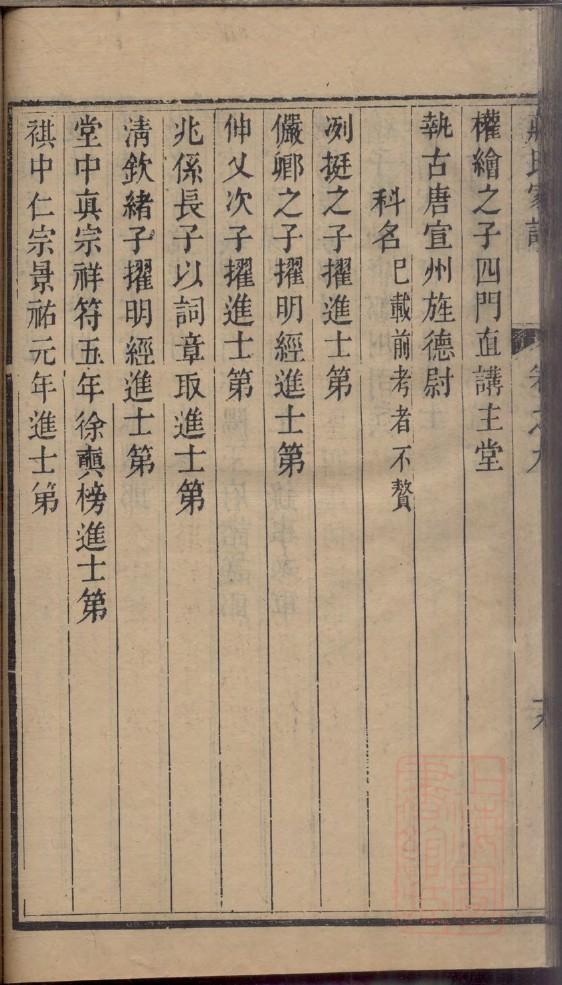 權繪之子四門直講主堂
執古唐宣州旌德尉
科名已載前考者不贅
冽挺之子擢進士第
儼卿之子擢明經進士第
伸乂次子擢進士第
兆係長子以詞章取進士第
淸欽緒子擢明經進士第
堂中眞宗祥符五年徐奭榜進士第
祺中仁宗景祐元年進士第